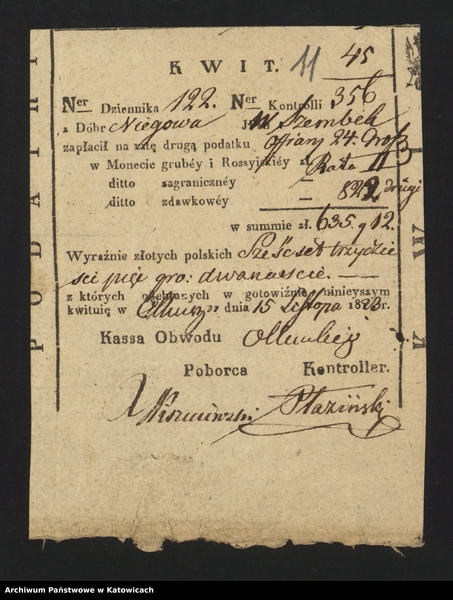 11 45
KWIT.
Ner Dziennika 122. Ner Kontrolli 356
z Dóbr Niegowa JW Szembek
zapłacił na ratę drugą podatku Ofiary 24. Grosz
w Monecie grubéy i Rossyiskiéy zł. Rata II
ditto zagranicznéy — drugi
ditto zdawkowéy — 822
w summie zł. 635. g 12.
Wyraźnie złotych polskich Sześćset trzydzie
ści pięć gro: dwanaście. —
z których odebranych w gotowiźnie ninieyszym
kwituię w Olkuszu dnia 15 Listopa 1823 r.
Kassa Obwodu Olkuskiey
Poborca Kontroller.
Płaziński
PODATKI
Archiwum Państwowe w Katowicach